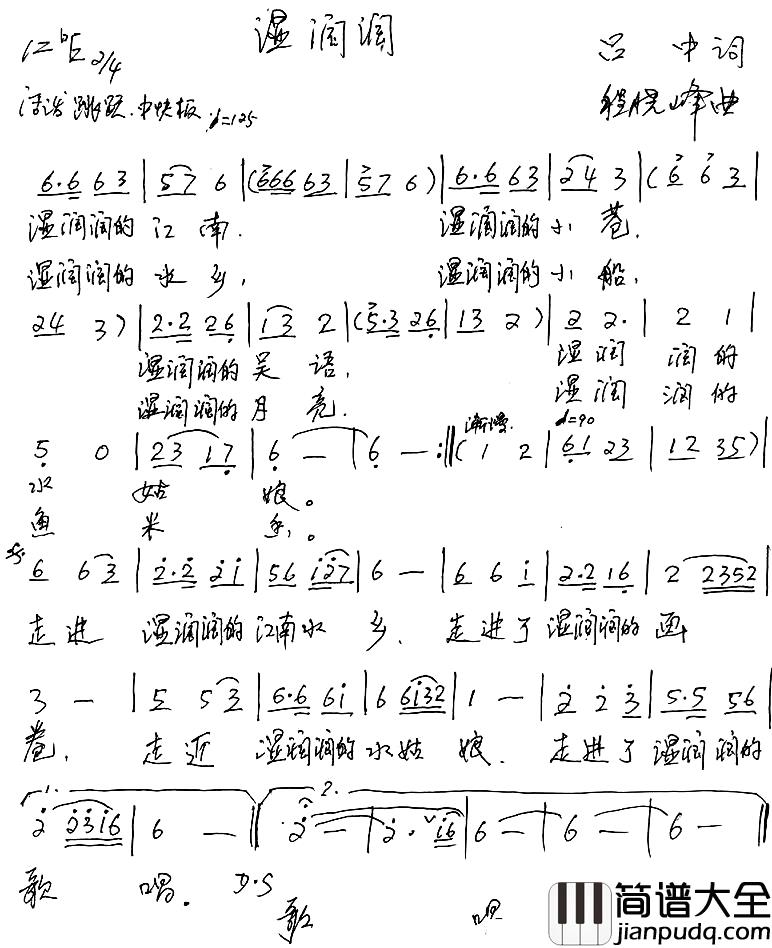 湿润润
1=ᵇE 2/4
吕 中词
活泼 跳跃.中快板 ♩=125
程晓峰曲
6·6 63 | 57 6 | (666 63 | 57 6) | 6·6 63 | 24 3 | (6 6 3 |
湿润润的 江 南. 湿润润的小 巷.
湿润润的 水 乡, 湿润润的小 船,
24 3) | 2·2 26 | 13 2 | (5·3 26 | 13 2) | 2 2· | 2 1 |
湿润润的吴 语, 湿 润 润 的
湿润润的月 亮. 湿 润 润 的
5 0 | 23 17 | 6 — | 6 — :‖ (渐慢. 1 2 | ♩=90 61 23 | 12 35) |
水 姑 娘。
鱼 米 乡。
6 63 | 2·2 21 | 56 127 | 6 — | 6 6 1 | 2·2 16 | 2 2352 |
走进 湿润润的江南水 乡. 走进了湿润润的 画
3 — | 5 53 | 6·6 61 | 6 6132 | 1 — | 2 2 3 | 5·5 56 |
卷, 走近 湿润润的水姑 娘. 走进了 湿润润的
1. 2 2316 | 6 — ‖ 2. 2 — | 2· ∨ 16 | 6 — | 6 — | 6 — ‖
歌 唱. D.S
歌 唱
简谱大全
jianpudq.com